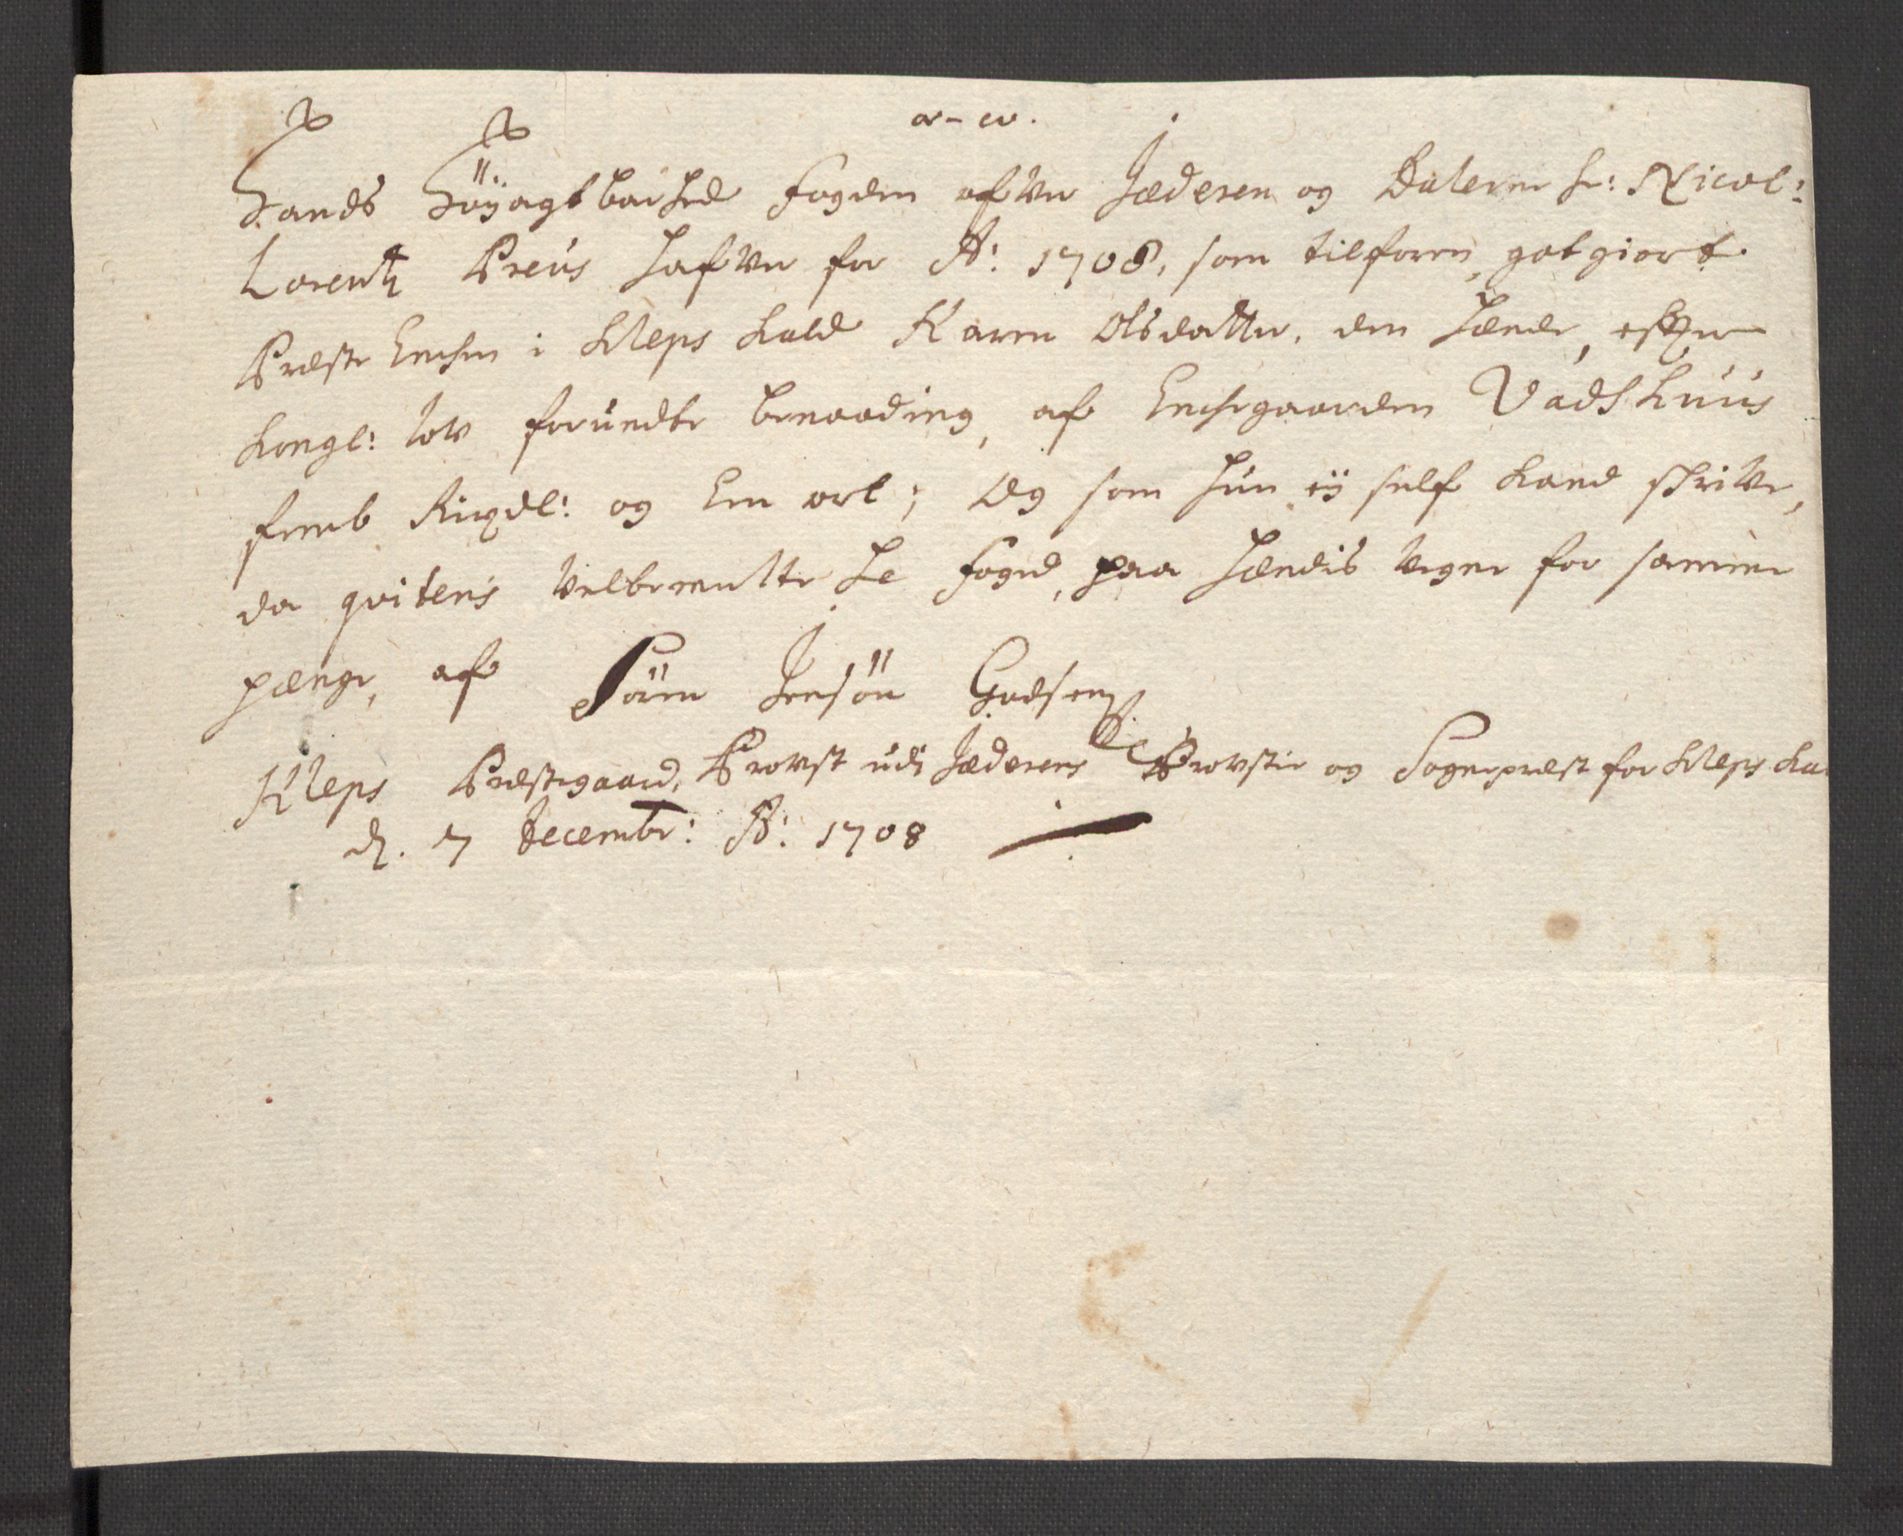 α - ω.
Hands Höÿagtbarhed Fogden ofver Jæderen og Dalerne hr: Nicol:
Lorentz Preus hafver for Ao: 1708, som tilforn, gotgiort
Præste Enchen i Kleps kald Karen Olsdatter, den hænde, efter
kongl: lov forundte benaading, af Enchegaarden Vadshuus
femb Rixdl: og Een ort; Og som hun eÿ self kand skrive,
da qvitens velbemelte hr Foged, paa hændis vegne for samme
penge, af Sören Jensön Godsen
Kleps Præstegaard, Provst udi Jæderens Provstie og Sognepræst for Kleps Ka
d. 7 Decembr: Ao: 1708